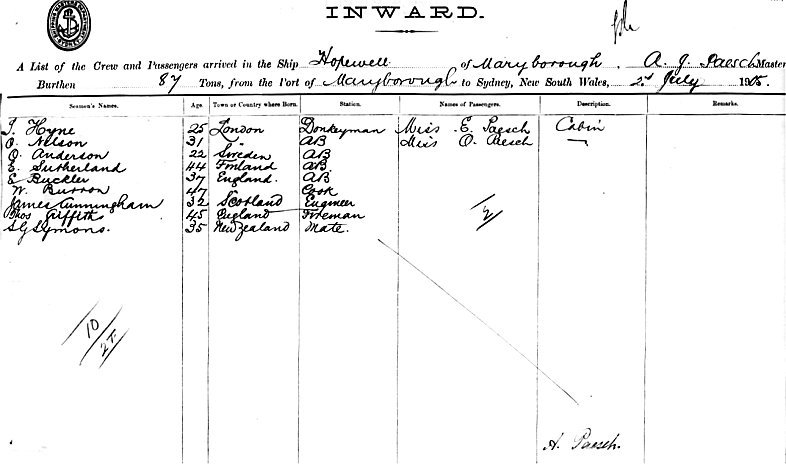 INWARD.
A List of the Crew and Passengers arrived in the Ship Hopewell of Maryborough, A. J. Paesch Master
Burthen 87 Tons, from the Port of Maryborough to Sydney, New South Wales, 2d July 190
Seamen's Names. Age. Town or Country where Born. Station. Names of Passengers. Description. Remarks.
J. Hyne 25 London Donkeyman Miss E. Paesch Cabin
O. Nelson 31 " AB Miss O. Paesch —
O. Anderson 22 Sweden AB
E. Sutherland 44 Finland AB
E. Buckler 37 England. AB
W. Burron 47 Cook
James Cunningham 32 Scotland Engineer
Thos Griffiths 45 England Fireman
S G Symons. 35 New Zealand Mate.
2
10
A. Paesch.